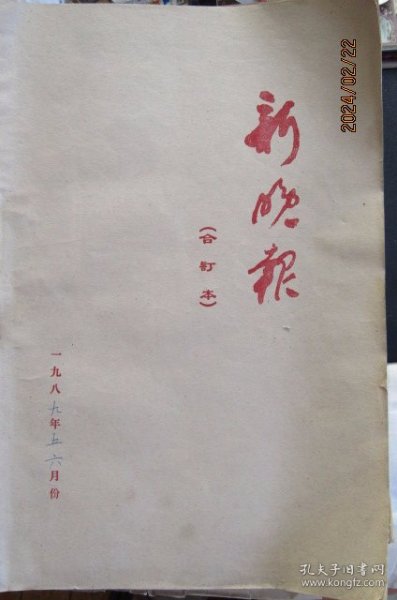 新晚报
(合订本)
一九八九年五六月份
2024/02/22
孔夫子旧书网
www.kongfz.com